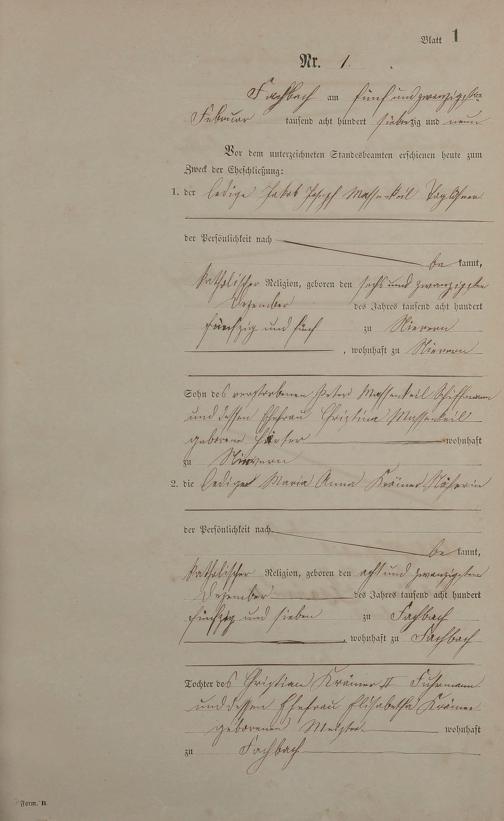 Blatt 1
Nr. 1.
Fachbach am fünf und zwanzigsten
Februar tausend acht hundert siebenzig und neun
Vor dem unterzeichneten Standesbeamten erschienen heute zum
Zweck der Eheschließung:
1. der ledige Jakob Joseph Massenkeil Taglöhner
der Persönlichkeit nach
be kannt,
katholischer Religion, geboren den sechs und zwanzigsten
Dezember des Jahres tausend acht hundert
fünfzig und fünf zu Nievern
, wohnhaft zu Nievern
Sohn des verstorbenen Peter Massenkeil Schiffmann
und dessen Ehefrau Christina Massenkeil
geborene wohnhaft
zu Nievern
2. die ledige Maria Anna Krämer Näherin
der Persönlichkeit nach
be kannt,
katholischer Religion, geboren den acht und zwanzigsten
Dezember des Jahres tausend acht hundert
fünfzig und sieben zu Fachbach
, wohnhaft zu Fachbach
Tochter des Christian Krämer II Fuhrmann
und dessen Ehefrau Elisabetha Krämer
geborenen wohnhaft
zu Fachbach
Form. B